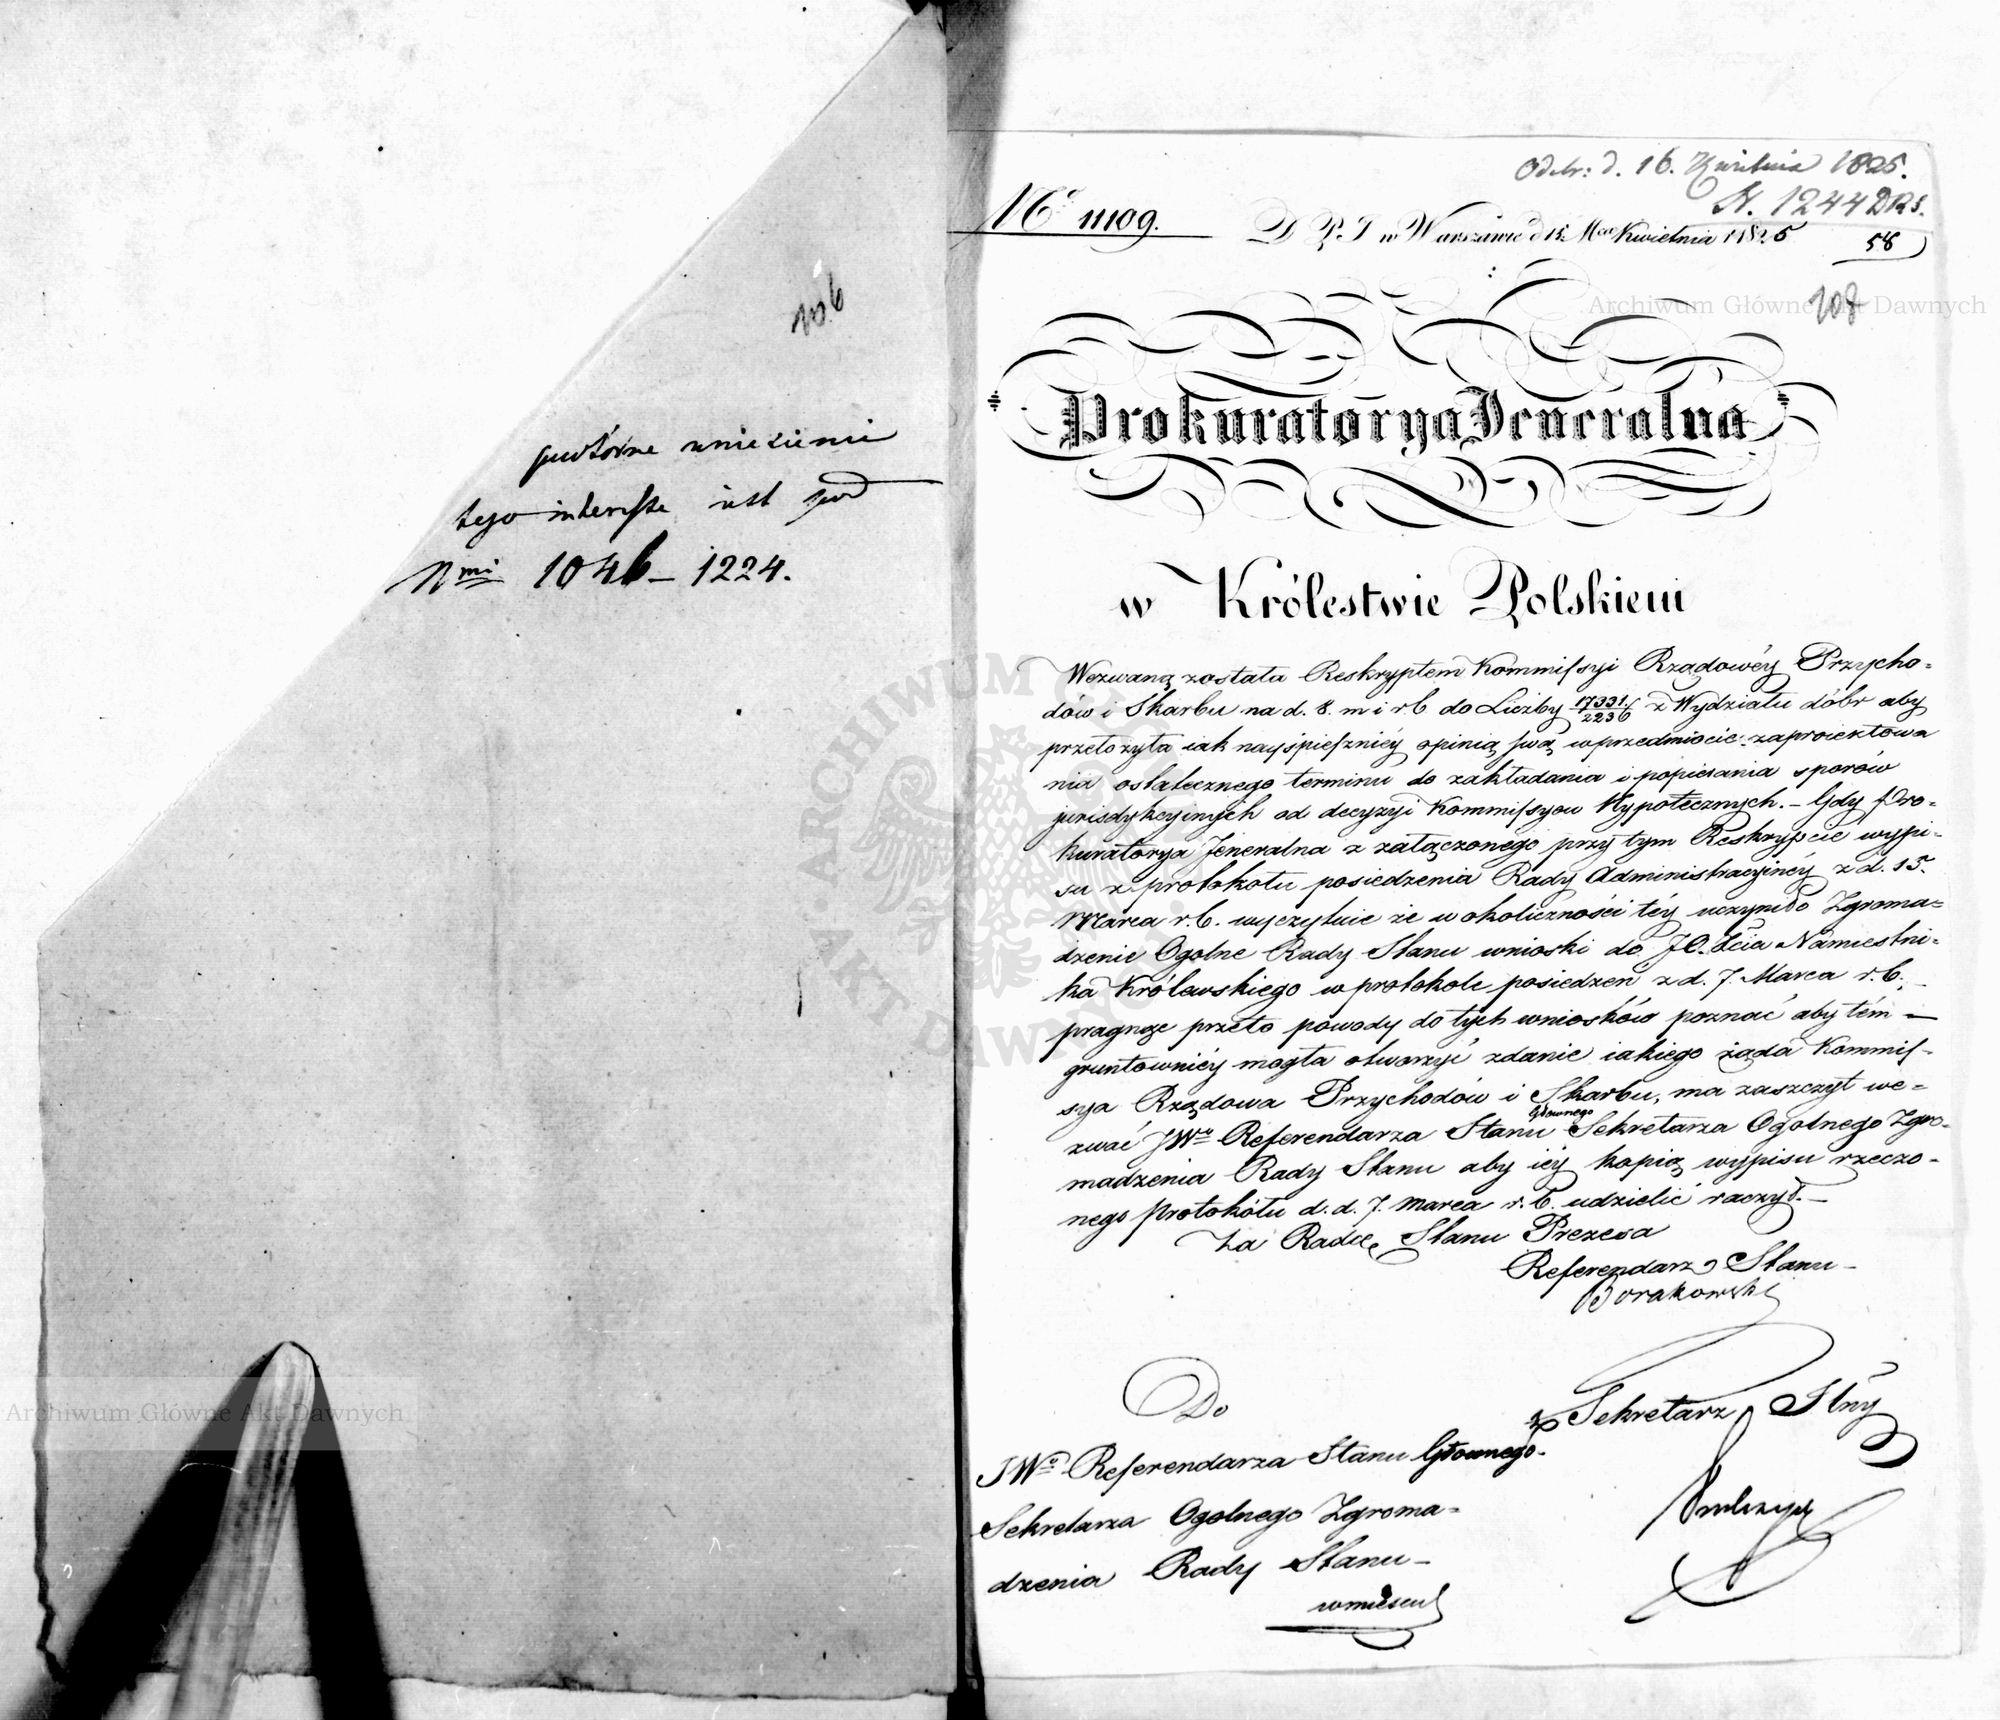 106
powtórne wniesienie
tego interesse iest pod
Nmi 1046 – 1224.
Odebr: d. 16. Kwietnia 1825.
N. 1244 DRS.
58
No 11109.
D P. J w Warszawie d 15. Mca Kwietnia 1825
108
Prokuratorya Jeneralna
w Królestwie Polskiem
Wezwaną została Reskryptem Kommissyi Rządowéy Przycho-
dów i Skarbu na d. 8. m i r b do Liczby 17331/2236 z Wydziału dóbr aby
przełożyła iak nayśpieszniéy opinią swą w przedmiocie zaproiektowa
nia ostatecznego terminu do zakładania i popierania sporów
jurisdykcyinych od decyzyi Kommissyow Hypotecznych. – Gdy Pro-
kuratorya Jeneralna z załączonego przy tym Reskrypcie wypi-
su z protokołu posiedzenia Rady Administracyinéy z d. 15.
Marca r. b. wyczytuie że w okoliczności téy uczyniło Zgroma-
dzenie Ogolne Rady Stanu wnioski do JO. Xcia Namiestni-
ka Królewskiego w protokole posiedzeń z d. 7. Marca r. b.,
pragnąc przeto powody do tych wniosków poznać aby tém –
gruntowniéy mogła otworzyć zdanie iakiego żąda Kommis-
sya Rządowa Przychodów i Skarbu, ma zaszczyt we-
zwać JWo Referendarza Stanu Głownego Sekretarza Ogolnego Zgro-
madzenia Rady Stanu aby iéy kopią wypisu rzeczo-
nego protokółu d. d. 7. Marca r. b. udzielić raczył. –
Za Radcę Stanu Prezesa
Referendarz Stanu –
Do
Sekretarz Jlny
JWo Referendarza Stanu Głownego
Sekretarza Ogolnego Zgroma-
dzenia Rady Stanu –
w mieyscu
Archiwum Główne Akt Dawnych
Archiwum Główne Akt Dawnych
ARCHIWUM GŁÓWNE AKT DAWNYCH